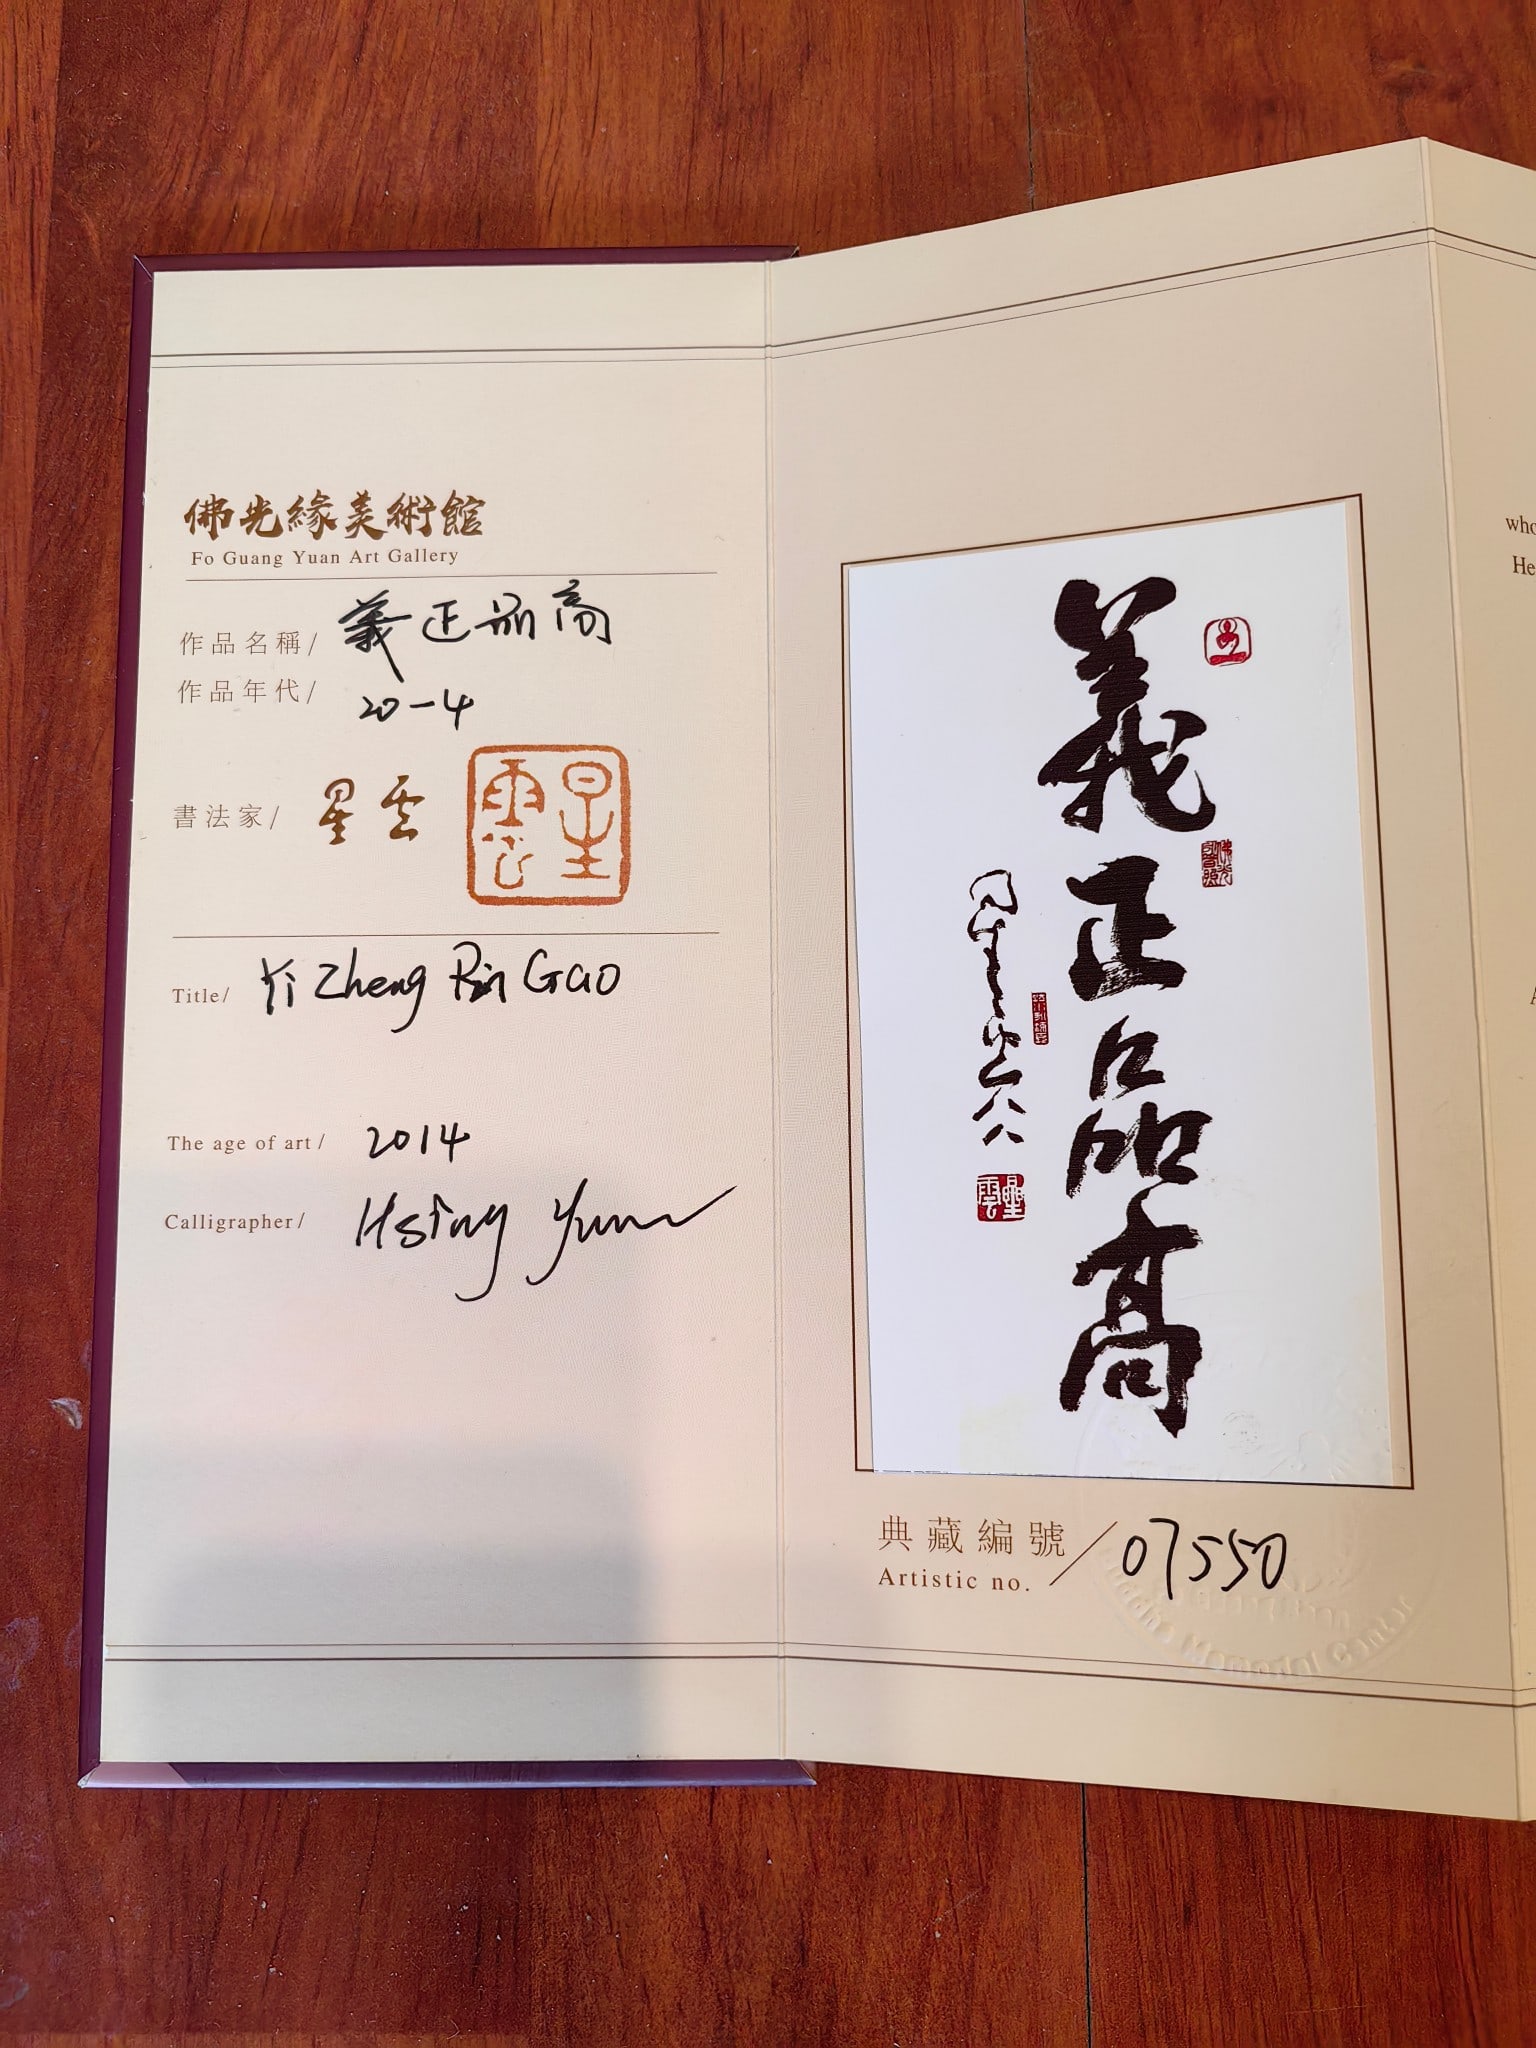 佛光緣美術館
Fo Guang Yuan Art Gallery
作品名稱/ 義正品高
作品年代/ 20-4
書法家/ 星雲
星雲
Title/ Yi Zheng Pin Gao
The age of art/ 2014
Calligrapher/ Hsing Yun
義正品高
星雲
八八
星雲
典藏編號/07550
Artistic no.
Buddha Memorial Center
who
He
A